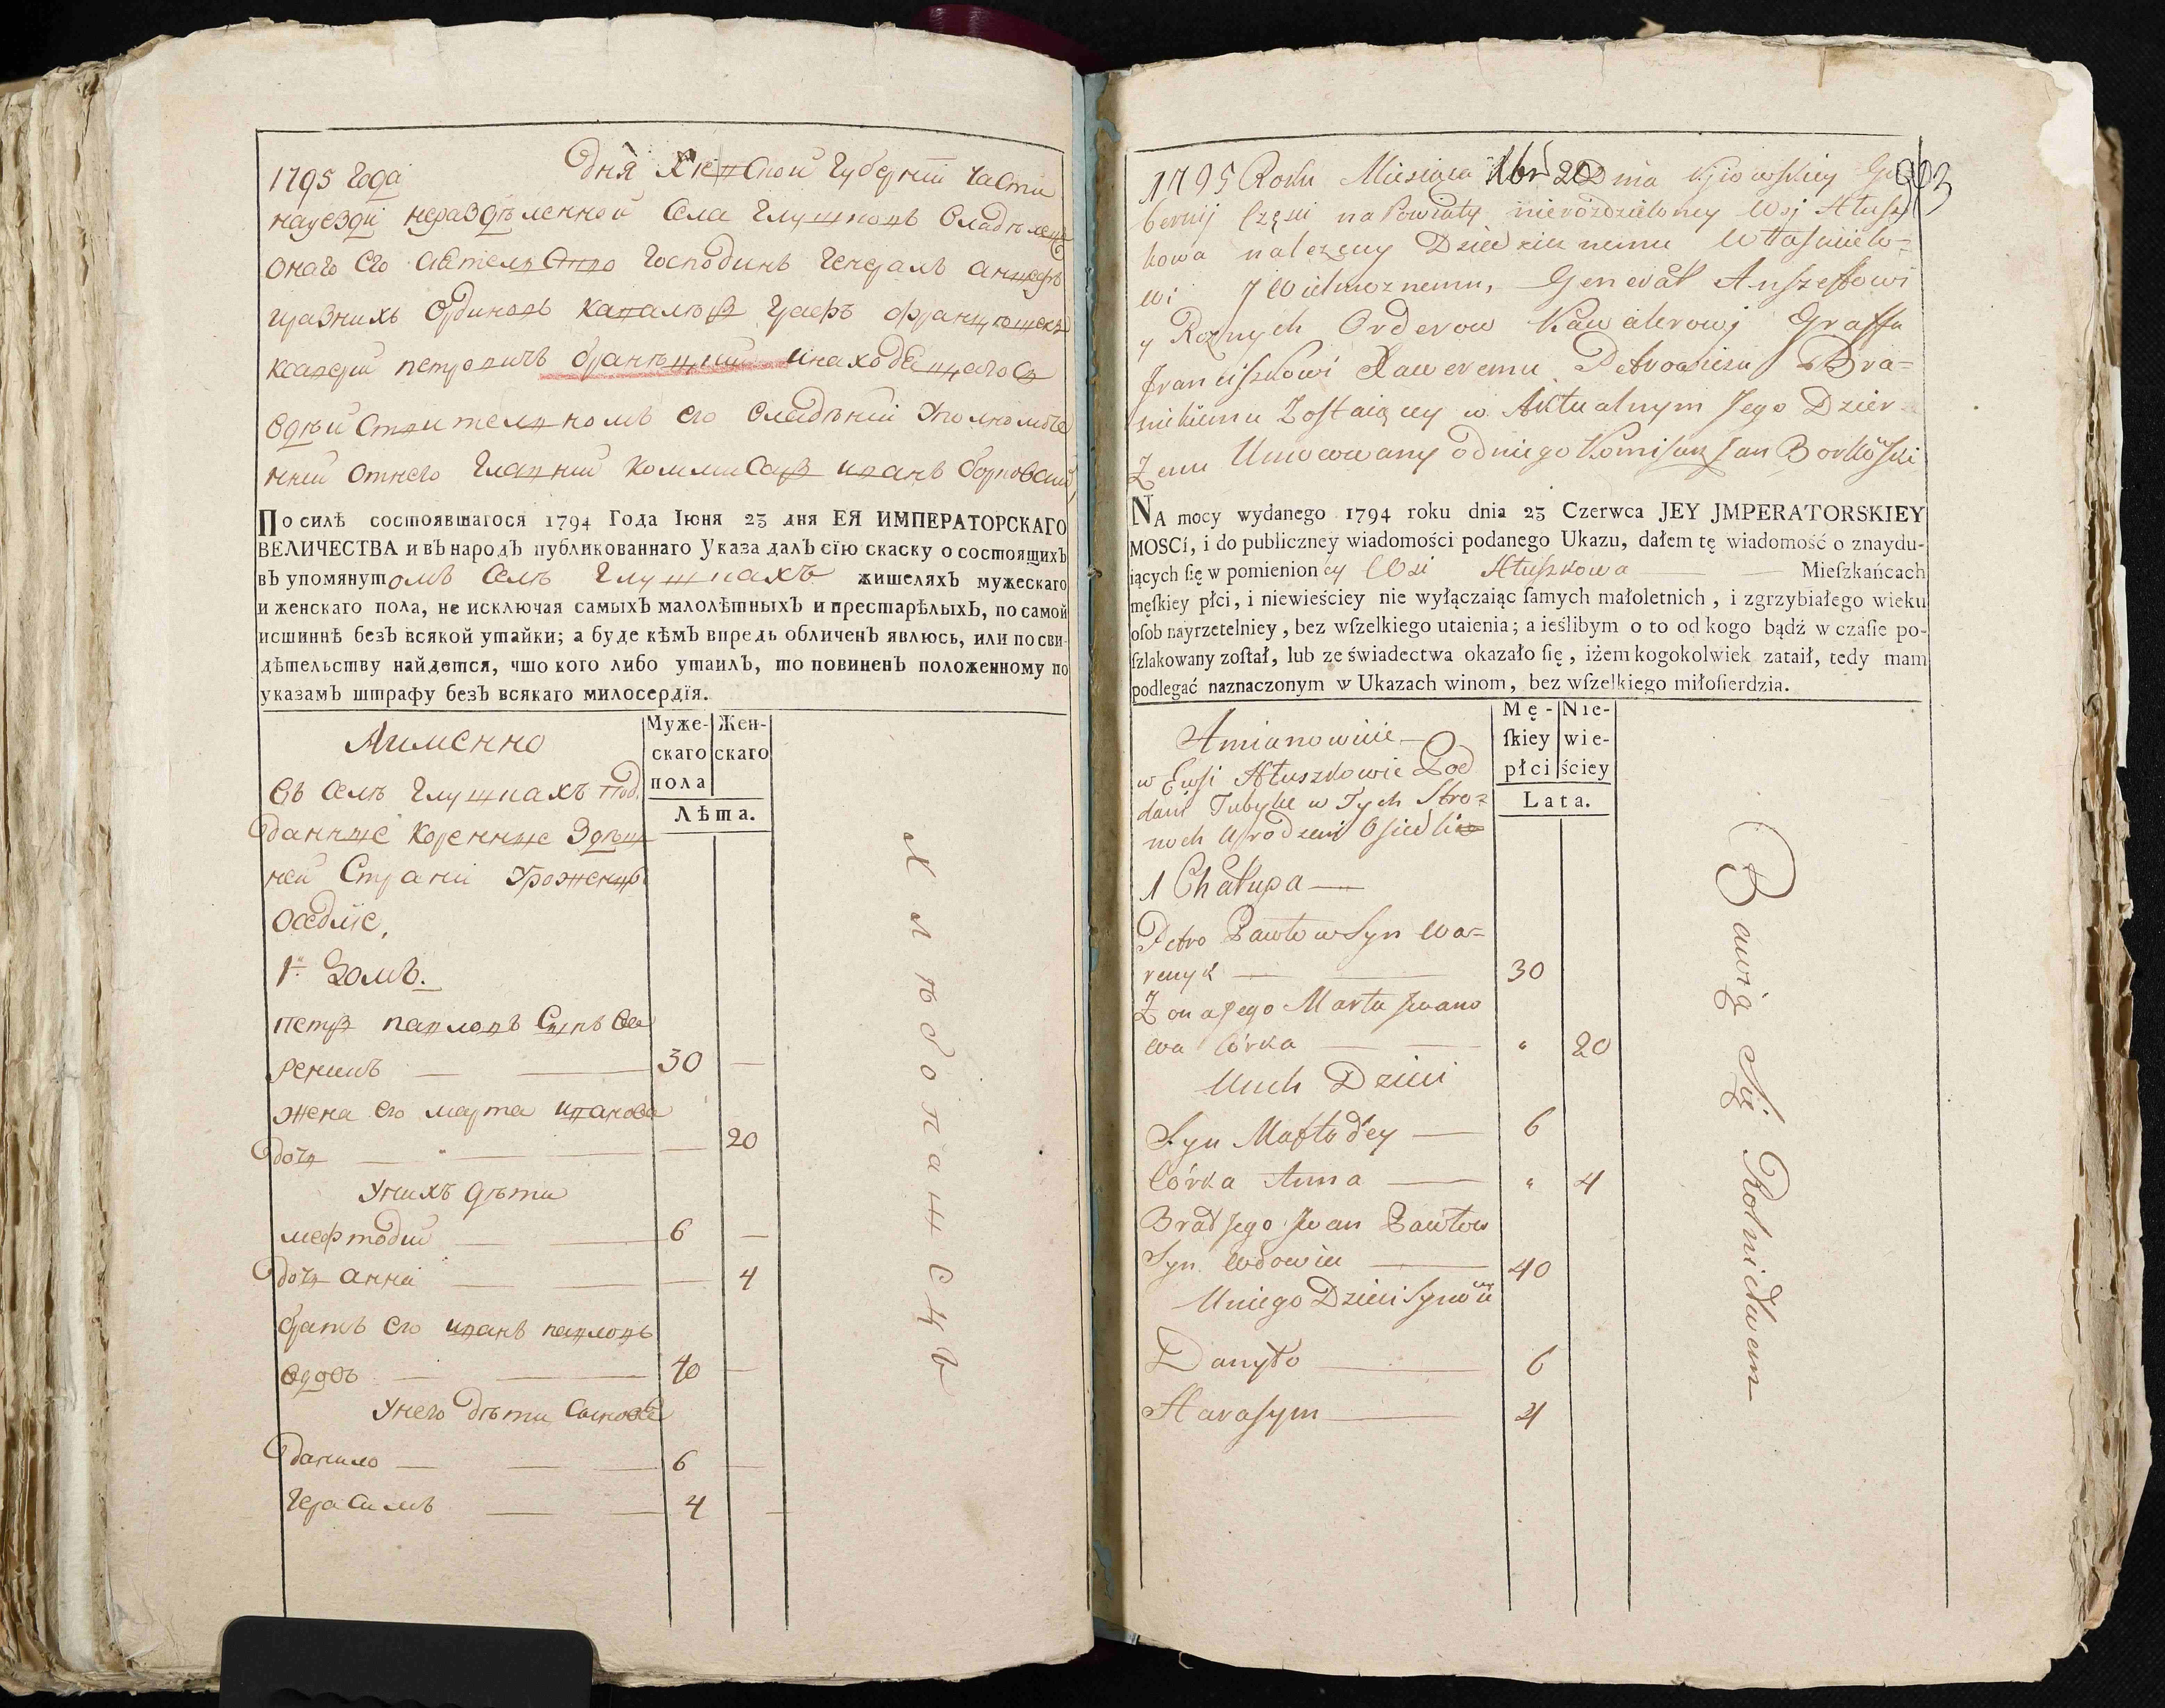 1795 года дня Кіевской губерніи части
науезди нераздѣленной села Глушковъ владѣлецъ
онаго его сіятелство господинъ генералъ аншефъ
разнихъ ординовъ кавалеръ графъ Францишекъ
Ксаверій Петровичъ Браницкій инаходящагося
его владѣній
нній отнего главній коммисаръ Иванъ Борковскій,
По силѣ состоявшагося 1794 Года Іюня 23 дня ЕЯ ИМПЕРАТОРСКАГО
ВЕЛИЧЕСТВА и въ народъ публикованнаго Указа далъ сїю скаску о состоящихъ
въ упомянутомъ селѣ Глушкахъ жителяхъ мужескаго
и женскаго пола, не исключая самыхъ малолѣтныхъ и престарѣлыхъ, по самой
истиннѣ безъ всякой утайки; а буде кѣмъ впредь обличенъ явлюсь, или по сви-
дѣтельству найдется, что кого либо утаилъ, то повиненъ положенному по
указамъ штрафу безъ всякаго милосердїя.
Аименно
Муже- Жен-
скаго скаго
пола
Лѣта.
Въ селѣ Глушкахъ под
данніе коренніе здѣш
ней страни уроженцы
оседліе,
1й домъ.
Петръ Павловъ сынъ Ва
реникъ — — 30 —
жена его Марта Иванова
дочь — " — — 20
Унихъ дѣти
Мефтодій — — 6 —
дочь Анна — — — 4
братъ его Иванъ Павловъ
вдовъ — — 40 —
Унего дѣти синове
Данило — — — 6 —
Герасимъ — — 4 —
Хлѣбопашецъ
993
1795 Roku Miesiąca Xbr 20 Dnia Kijowskiey Gu
bernij Częsci na Powiaty nierozdzieloney Wsi Hłusz
kowa należący Dziedzicznemu Własciicielo=
wi JWielmoznemu, Generał Anszeffowi
y Roznych Orderow Kawalerowi Graffu
Franciszkowi Xaweremu Petrowiczu Bra=
nickiemu Zostaiącey w Aktualnym Jego Dzier=
żeniu Umocowany odniego Komisarz Jan Borkowski
NA mocy wydanego 1794 roku dnia 23 Czerwca JEY JMPERATORSKIEY
MOSCi, i do publiczney wiadomości podanego Ukazu, dałem tę wiadomość o znaydu-
iących ſię w pomienioney Wsi Hłuszkowa — — Mieſzkańcach
męſkiey płci, i niewieściey nie wyłączaiąc ſamych małoletnich, i zgrzybiałego wieku
oſob nayrzetelniey, bez wſzelkiego utaienia; a ieślibym o to od kogo bądź w czáſie po-
ſzlakowany zoſtał, lub ze świadectwa okazało ſię, iżem kogokolwiek zataił, tedy mam
podlegać naznaczonym w Ukazach winom, bez wſzelkiego miłoſierdzia.
Amianowicie —
Mę- Nie-
ſkiey wie-
płci ściey
Lata.
w Ewsi Hłuszkowie Pod
dani Tubylce w Tych Stro=
noch Urodzeni Osiedli
1 Chałupa —
Petro Pawłow Syn Wa=
renyk — — 30
Zona Jego Marta Jwano
wa Córka — — " 20
Unich Dzieci
Syn Maftodey — 6
Córka Anna — " 4
Brat Jego Jwan Pawłow
Syn Wdowiec — 40
Uniego Dzieci Synowie
Danyło — 6
Harasym — 4
Bawią Się Rolnictwem